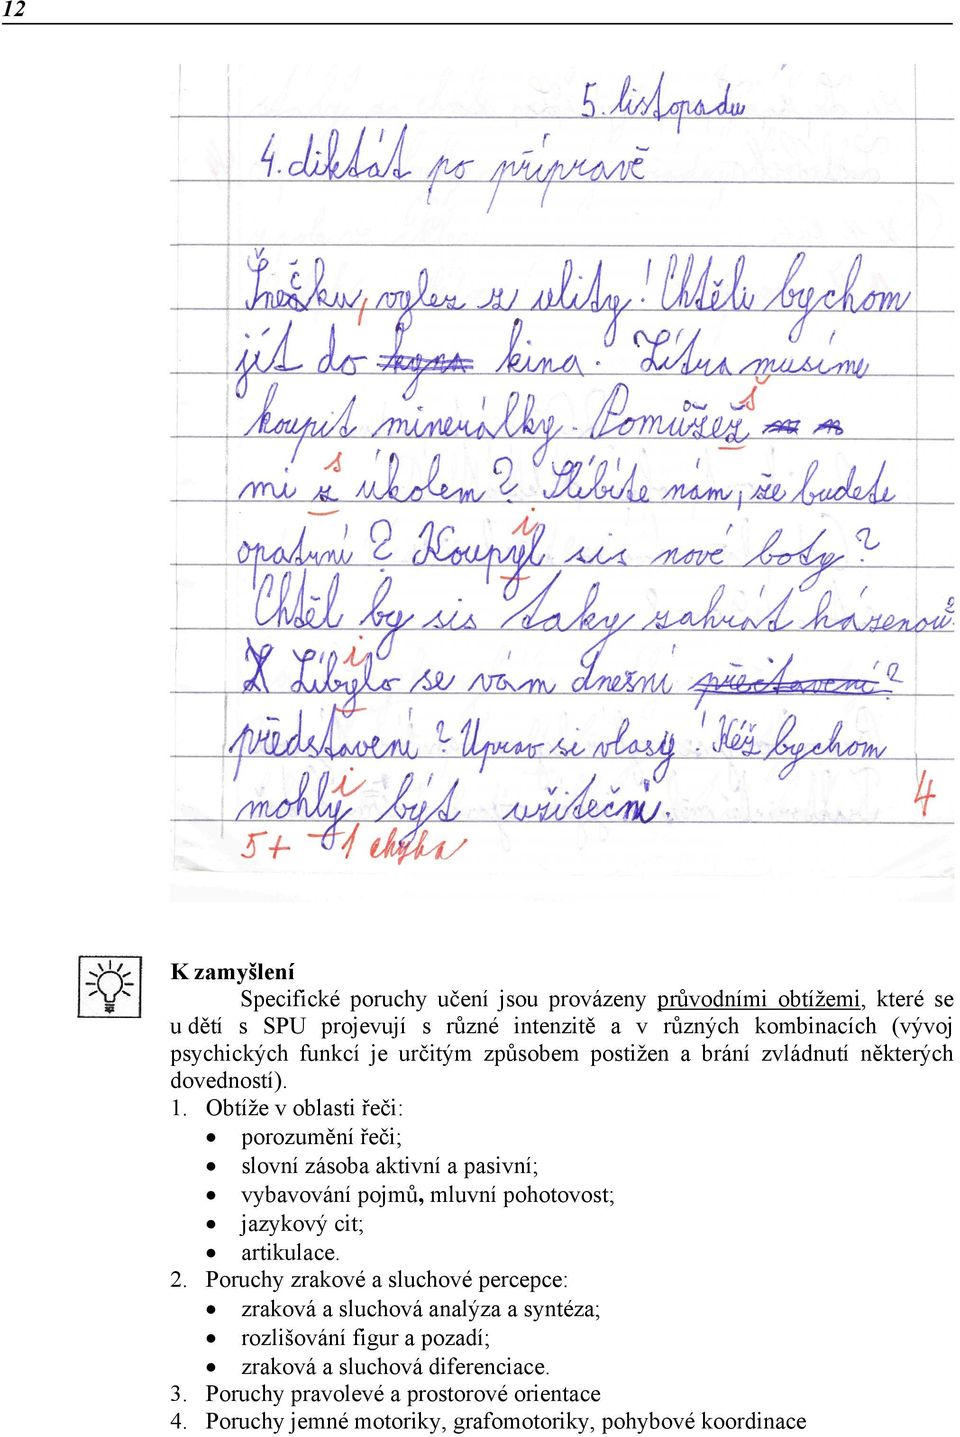 12
5. listopadu
4. diktát po přípravě
Šnečku, vylez z ulity! Chtěli bychom
jít do kyna kina. Zítra musíme
š
koupit minerálky. Pomůžež
s
mi z úkolem? Slíbíte nám, že budete
i
opatrní? Koupyl sis nové boty?
Chtěl by sis taky zahrát házenou?
i
Líbylo se vám dnešní představení?
představení? Uprav si vlasy! Kéž bychom
i
mohly být užiteční.
4
5+ 1 chyba
K zamyšlení
Specifické poruchy učení jsou provázeny průvodními obtížemi, které se
u dětí s SPU projevují s různé intenzitě a v různých kombinacích (vývoj
psychických funkcí je určitým způsobem postižen a brání zvládnutí některých
dovedností).
1. Obtíže v oblasti řeči:
• porozumění řeči;
• slovní zásoba aktivní a pasivní;
• vybavování pojmů, mluvní pohotovost;
• jazykový cit;
• artikulace.
2. Poruchy zrakové a sluchové percepce:
• zraková a sluchová analýza a syntéza;
• rozlišování figur a pozadí;
• zraková a sluchová diferenciace.
3. Poruchy pravolevé a prostorové orientace
4. Poruchy jemné motoriky, grafomotoriky, pohybové koordinace